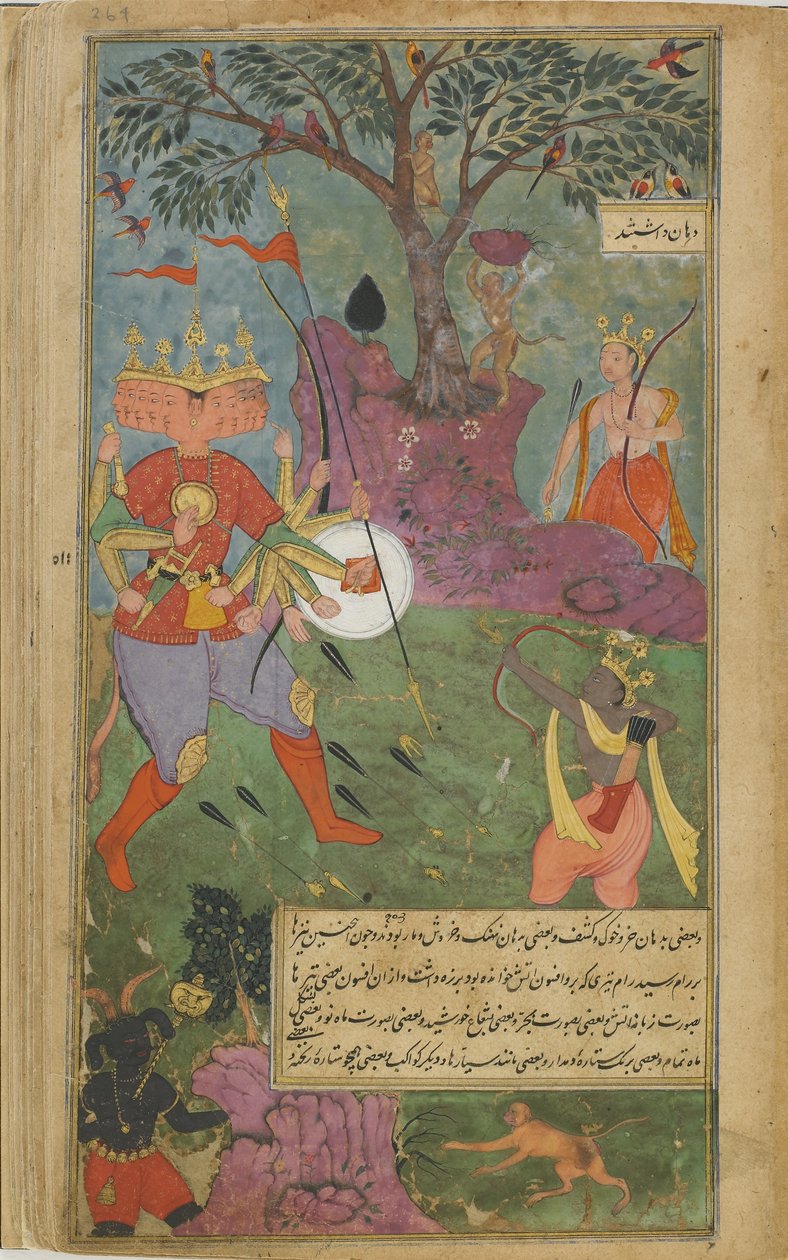 264
دهان داشتند
۲۵۳
وبعضی بدهان خر وخوک وکشف وبعضی بدهان نهنک وخروش ومار بودند وچون اینچنین تیرها
بررام رسید رام تیری که برو افسون اتش خوانده بود برزه داشت واز ان افسون بعضی تیرها
بصورت زبانه اتش وبعضی بصورت وبعضی بشعاع خورشید وبعضی بصورت ماه نو وبعضی بشکل
ماه تمام وبعضی برنک ستارهٔ دمدار وبعضی مانند سیارها ودیکر کواکب وبعضی همچو ستارهٔ